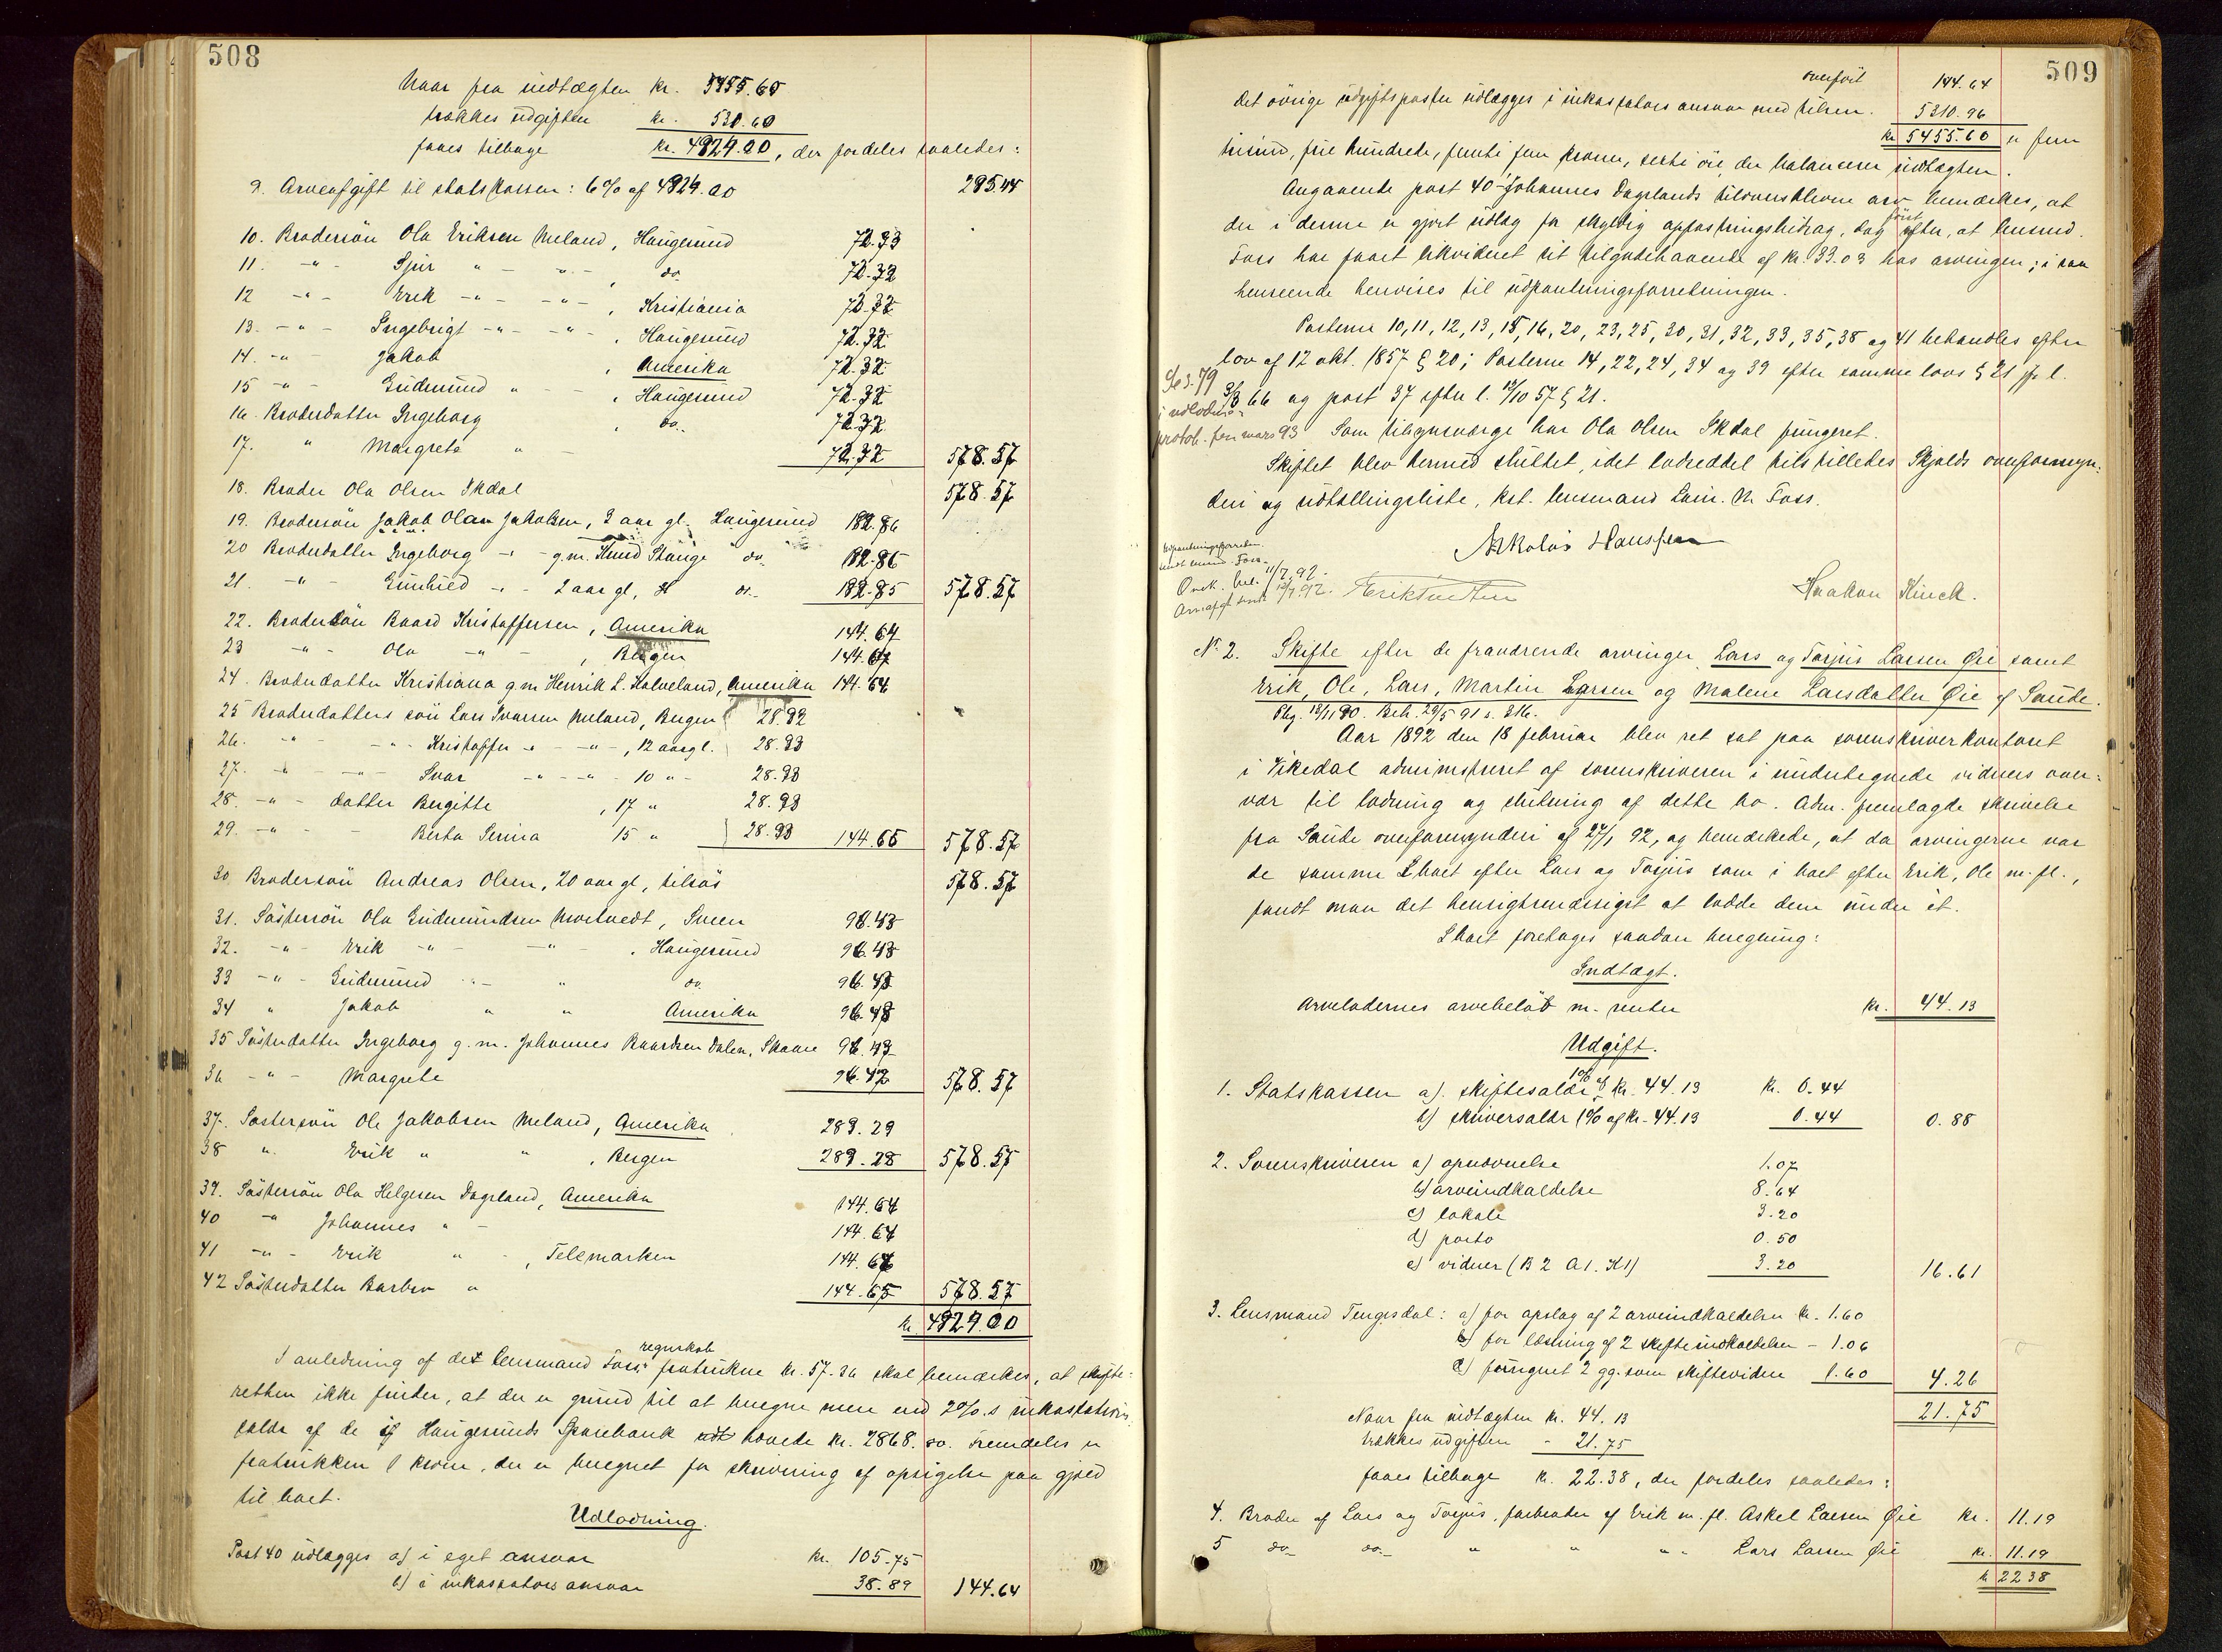 508
Naar fra indtægten kr. 5455.60
trækkes udgiften kr. 530.60
faaes tilbage kr. 4924.00, der fordeles saaledes:
9. Arveafgift til statskassen: 6% af 4924.00 295.44
10. Brodersön Ola Eriksen Meland, Haugesund 72.33
11. -"- Sjur " - " - , do. 72.32
12 -"- Erik -"- -"- , Kristiania 72.32
13. -"- Ingebrigt -"- -"- , Haugesund 72.32
14. -"- Jakob , Amerika 72.32
15 -"- Gudmund " - , Haugesund 72.32
16. Broderdatter Ingeborg , do. 72.32
17. " Margrete " - 72.32 578.57
18. Broder Ola Olsen Ekdal 578.57
19. Brodersön Jakob Olaus Jakobsen, 3 aar gl. Haugesund 192.86
20 Broderdatter Ingeborg -"- g.m. Knud Stange do. 192.86
21. -"- Gunhild -"- 2 aar gl, H do. 192.85 578.57
22. Brodersön Baard Kristoffersen, Amerika 144.64
23 -"- Ola -"- , Bergen 144.64
24. Broderdatter Kristiana g.m. Henrik L. Halveland, Amerika 144.64
25 Broderdatters sön Lars Ivarsen Meland, Bergen 28.92
26. -"- -"- Kristoffer -"- -"-, 12 aar gl. 28.93
27. -"- -"- Ivar -"- -"- 10 "- 28.93
28. -"- datter Bergitte , 17 " 28.93
29. -"- - Berta Serina 15 " 28.93 144.65 578.57
30 Brodersön Andreas Olsen, 20 aar gl, tilsös 578.57
31. Söstersön Ola Gudmundsen Mortvedt, Sveen 96.43
32. -"- Erik -"- -"- , Haugesund 96.43
33 -"- Gudmund -"- " do. 96.43
34 " Jakob " " Amerika 96.43
35 Sösterdatter Ingeborg g.m. Johannes Baardsen Dalen, Skaare 96.43
36 -"- Margrete 96.42 578.57
37. Söstersön Ole Jakobsen Meland, Amerika 289.29
38 " Erik " " , Bergen 289.28 578.57
39. Söstersön Ola Helgesen Dagsland, Amerika 144.64
40 -" Johannes " - 144.64
41 -"- Erik " - , Telemarken 144.64
42 Sösterdatter Barbro " 144.65 578.57
kr 4924.00
I anledning af det lensmand Foss' regnskab fratrukne kr. 57.36 skal bemærkes, at skifte-
retten ikke finder, at der er grund til at beregne mere end 2%s inkassations-
salær af de i Haugesunds Sparebank udt hævede kr. 2868.00. Fremdeles er
fratrukken 1 krone, der er beregnet for skrivning af opsigelse paa gjæld
til boet.
Udlodning.
Post 40 udlægges a) i eget ansvar kr. 105.75
b) i inkassators ansvar 38.89 144.64
509
overfört 144.64
det övrige udgiftsposter udlægges i inkassators ansvar med tilsm. 5310.96
kr 5455.60 er fem
tusind, fire hundrede, femti fem kroner, sexti öre, der balancerer indtægten.
Angaaende post 40 - Johannes Dagslands tilsvunskevne arv bemærkes, at
der i denne er gjort udlæg for skyldig oppfostringsbidrag, dog först efter, at lensmd.
Foss har faaet likvideret sit tilgodehavende af kr. 33.03 hos arvingen; i saa
henseende henvises til udpantningsforretningen.
Posterne 10, 11, 12, 13, 15, 16, 20, 23, 25, 30, 31, 32, 33, 35, 38 og 41 behandles efter
lov af 12 okt. 1857 § 20; Posterne 14, 22, 24, 34 og 39 efter samme lovs § 21 jfr l.
3/3 66 og post 37 efter l. 12/10 57 § 21.
Se s. 79
i udlodns-
protok. for mars 93
Som tilsynsværge har Ola Olsen Ekdal fungeret.
Skiftet blev hermed sluttet, idet lodseddel tilstilledes Skjolds overformyn-
deri og udtællingsliste, kst. lensmand Laur. M. Foss.
Nikolas Hanssen
Udpantningsforretn.
sendt lensmd. Foss.
Ovsk. bel. 11/7.92.
Arveafgt sendt 12/7.92.
Erik Tveiten
Haakon Kinck.
№ 2. Skifte efter de fraværende arvinger Lars og Torjus Larsen Öie samt
Erik, Ole, Lars, Martin Larsen og Malene Larsdatter Öie af Saude.
Plg. 12/11 90. Beh. 29/5 91 s. 316.
Aar 1892 den 18 februar blev ret sat paa sorenskriverkontoret
i Vikedal administreret af sorenskriveren i undertegnede vidners over-
vær til lodning og slutning af dette bo. Adm. fremlagde skrivelse
fra Saude overformynderi af 27/1 92, og bemærkede, at da arvingerne var
de samme i boet efter Lars og Torjus som i boet efter Erik, Ole m. fl.,
fandt man det hensigtsmæssigst at lodde dem under ét.
I boet foretages saadan beregning:
Indtægt.
Arvelodernes arvebelöb m. renter kr. 44.13
Udgift.
1. Statskassen a). skiftesalær 1% af kr. 44.13 kr. 0.44
b) skriversalær 1% af kr. 44.13 0.44 0.88
2. Sorenskriveren a) opnævnelse 1.07
b) arveindkaldelse 8.64
c) lokale 3.20
d) porto 0.50
e) vidner (B 2 A 1. K 1) 3.20 16.61
3. Lensmand Tengesdal: a) for opslag af 2 arveindkaldelser kr. 1.60
b) for læsning af 2 skifteindkaldelser - 1.06
c) fungeret 2 gg. som skiftevidne 1.60 4.26
21.75
Naar fra indtægten kr. 44.13
trækkes udgiften - 21.75
faaes tilbage kr. 22.38, der fordeles saaledes:
4. Broder af Lars og Torjus, farbroder af Erik m. fl. Askel Larsen Öie kr. 11.19
5 do- do.- " " " - Lars Larsen Öie kr. 11.19
kr 22 38